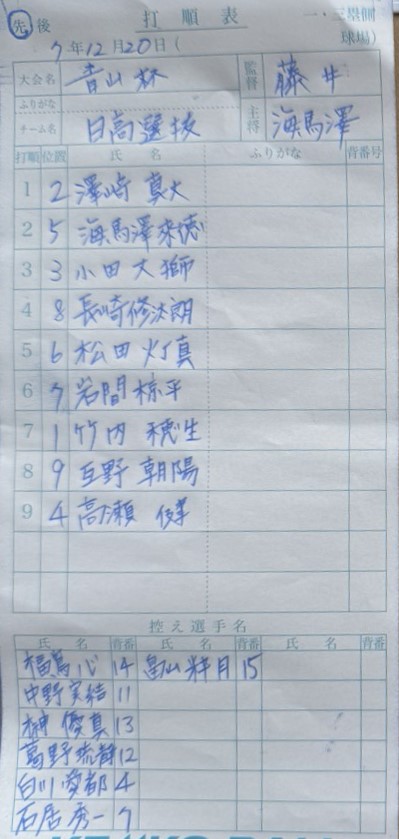 先 後 打順表 一・三塁側
7年12月20日( 球場)
大会名 青山杯 監督 藤井
ふりがな
チーム名 日高選抜 主将 海馬澤
打順 位置 氏名 ふりがな 背番号
1 2 澤崎 真大
2 5 海馬澤来徳
3 3 小田大獅
4 8 長崎修汰朗
5 6 松田 灯真
6 7 岩間椋平
7 1 竹内 穂生
8 9 亙野 朝陽
9 4 高瀬
控え選手名
氏名 背番 氏名 背番 氏名 背番
福島心 14 畠山 15
中野実結 11
榊 優真 13
葛野琉都 12
白川愛都 4
石居秀一 7